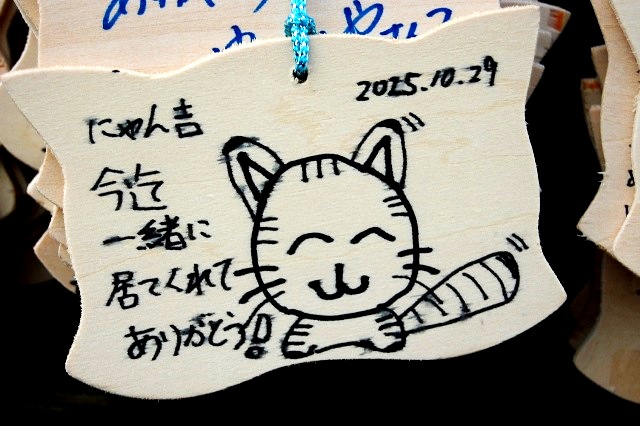 2025.10.29
にゃん吉
今迄
一緒に
居てくれて
ありがとう!